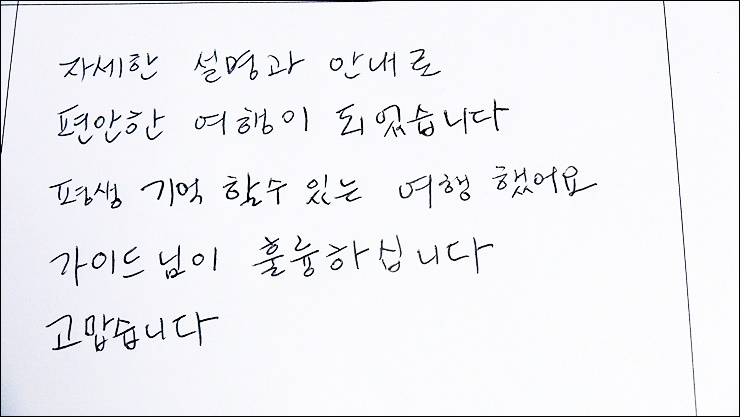 자세한 설명과 안내로
편안한 여행이 되었습니다
평생 기억 할수 있는 여행 했어요
가이드님이 훌륭하십니다
고맙습니다